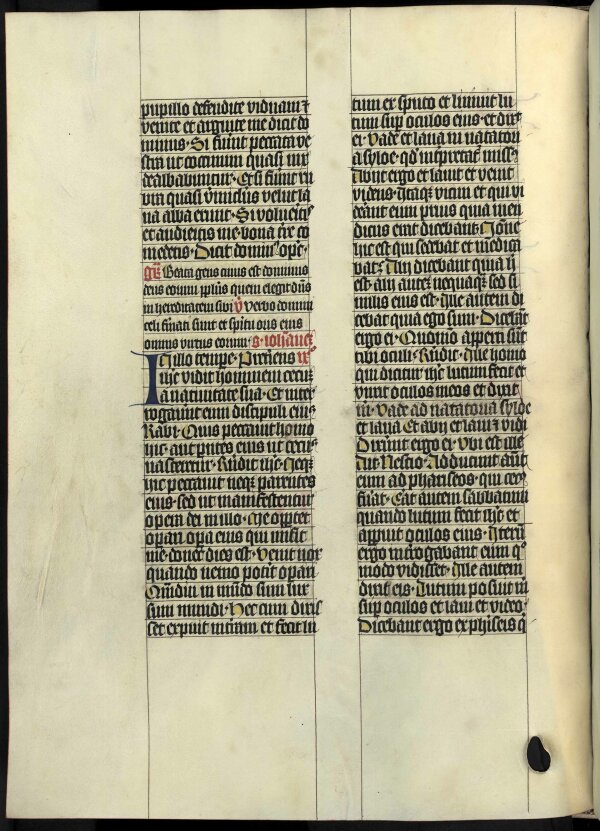 pupillo defendite viduam ⁊
venite et arguite me dicit do
minus · Si fu̅int peccata ve
stra ut coccinum quasi nix
dealbabuntur · Et si fu̅int ru
bra quasi v̅miclus velut la
na alba erunt · Si volu̅itis
et audieritis me · bona t̅re co
medetis · Dicit domin⁹ o̅p̅e̅ ·
gr̅ Beata gens cuius est dominus
deus eorum pp̅lus quem elegit dn̅s
in hereditatem sibi v̅ verbo domini
celi firmati sunt et spiritu oris eius
omnis virtus eorum · s · ioha̅nez
In illo tempe̅ · Pret̅iens ih̅c
vidit hominem cecu̅
a nativitate sua̅ · Et inter
rogaverunt eum discipuli ei⁹
Rabi · Quis peccavit homo
hic · aut pa̅ntes eius ut cecu⁹
nasceretur · Rn̅dit ih̅c · Neq₃
hic peccavit neq₃ parentes
eius · sed ut manifestentur
opera dei in illo · Me oportet
operari opera eius qui misit
me donec dies est · Venit nox
quando nemo potest operari
Qua̅diu in mu̅do sum lux
sum mundi · Hec cum dixis
set expuit in t̅ram et fecit lu
tum ex sputo et linivit lu
tum sup oculos eius · et dix̅
ei · Vade et lava in natatori
a syloe · qd̅ inter̅pretat̅ miss⁹
Abijt ergo et lavit et venit
videns · Itaq₃ vicini et qui vi
derant eum prius quia men
dicus erat dicebant · Nonne
hic est qui sedebat et mendica
bat · Alij dicebant quia hic
est · alij aute̅ nequaq̅ · sed si
milis eius est · Ille autem di
cebat quia ego sum · Dicebant
ergo ei · Quomo̅ aperti su̅t
tibi oculi · Rn̅dit · Ille homo
qui dicitur ih̅c lutum fecit et
unxit oculos meos et dixit
m̅ · Vade ad natatoria syloe
et lava Et abij et lavi ⁊ vidi
Dixerunt ergo ei · Ubi est ille
Ait Nescio · Adducunt aut̅
eum ad phariseos · qui cec⁹
fu̅at · Erat autem sabbatum
quando lutum fecit ih̅c et
aperuit oculos eius · Iteru̅
ergo interrogabant eum quo
modo vidisset · Ille autem
dixit eis · Lutum posuit m̅
sup oculos et lavi et video ·
Dicebant ergo ex phiseis q̅